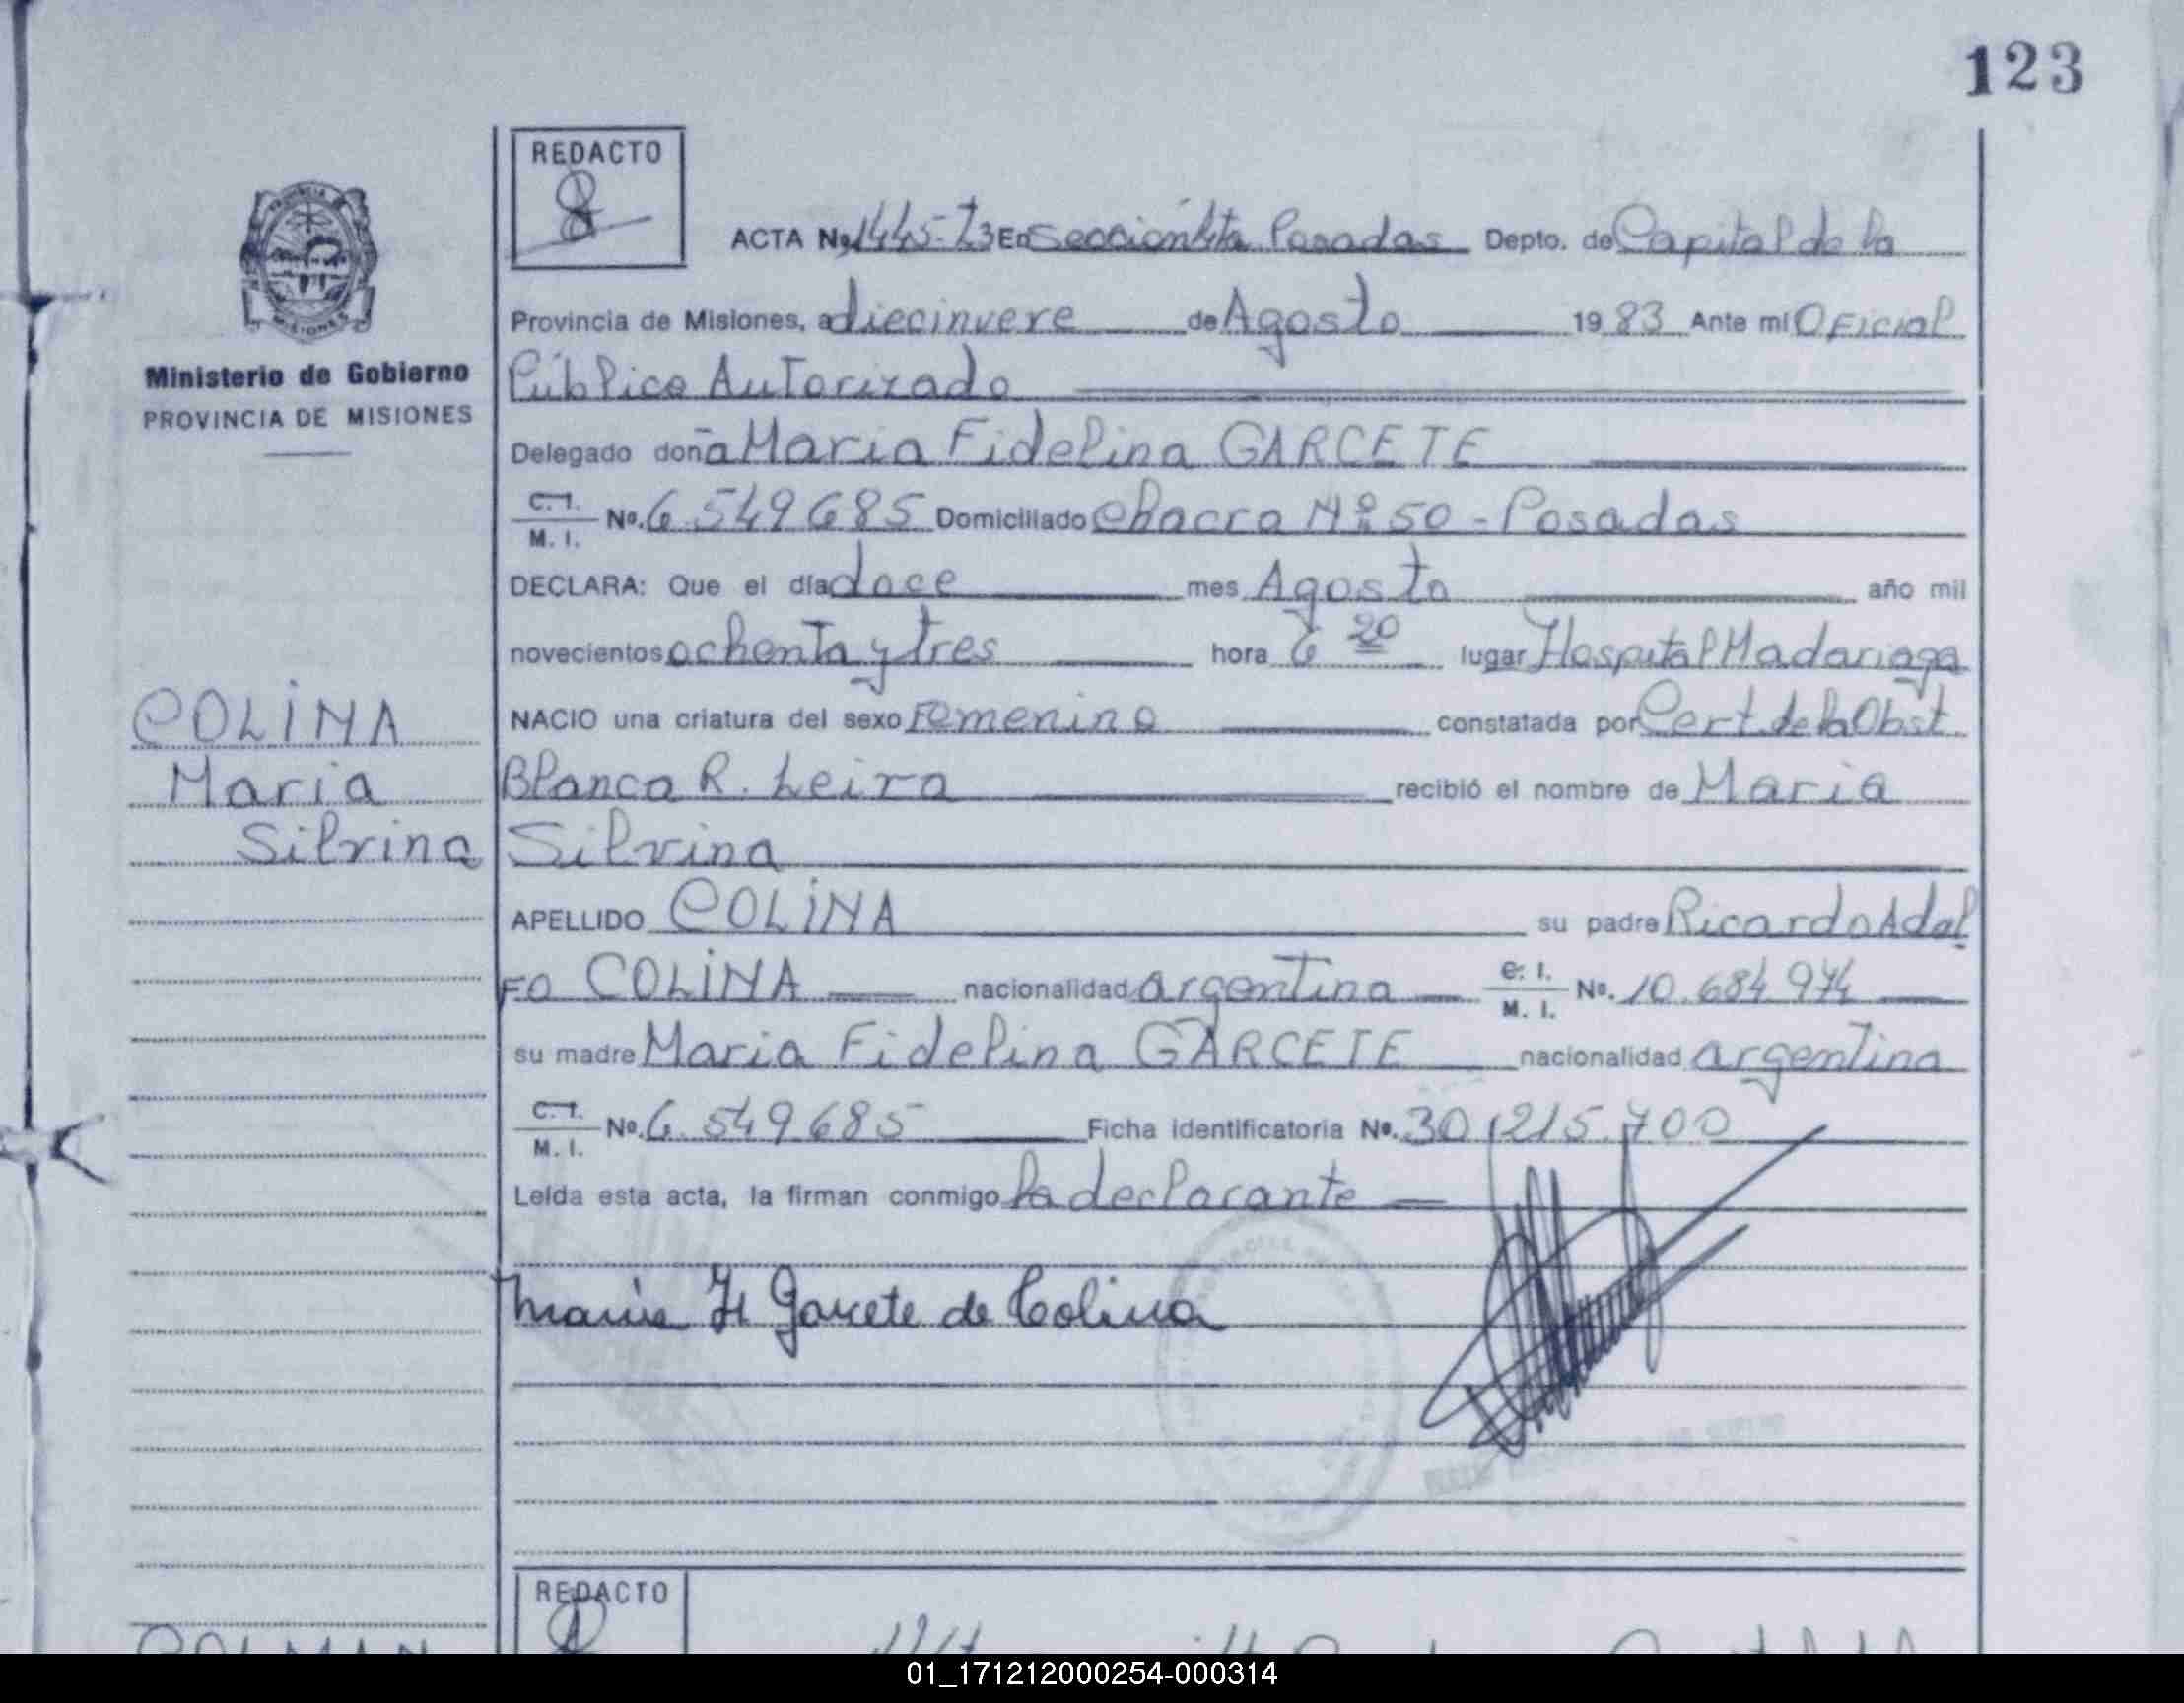 123
REDACTO
8
ACTA No. 1445-T3 En Sección 4ta Posadas Depto. de Capital de la
Provincia de Misiones, a diecinueve de Agosto 1983 Ante mi Oficial
Público Autorizado
Ministerio de Gobierno
PROVINCIA DE MISIONES
Delegado doña Maria Fidelina GARCETE
C.I. / M. I. No. 6.549685 Domiciliado Chacra Nº 50 - Posadas
DECLARA: Que el día doce mes Agosto año mil
novecientos ochenta y tres hora 6 20 lugar Hospital Madariaga
NACIO una criatura del sexo Femenino constatada por Cert. de la Obst.
Blanca R. Leiva recibió el nombre de Maria
Silvina
COLINA
Maria
Silvina
APELLIDO COLINA su padre Ricardo Adol
FO COLINA nacionalidad argentina C. I. / M. I. No. 10.684.974
su madre Maria Fidelina GARCETE nacionalidad argentina
C. I. / M. I. No. 6.549.685 Ficha identificatoria No. 30.215.700
Leída esta acta, la firman conmigo la declarante
Maria F. Garcete de Colina
REDACTO
01_171212000254-000314